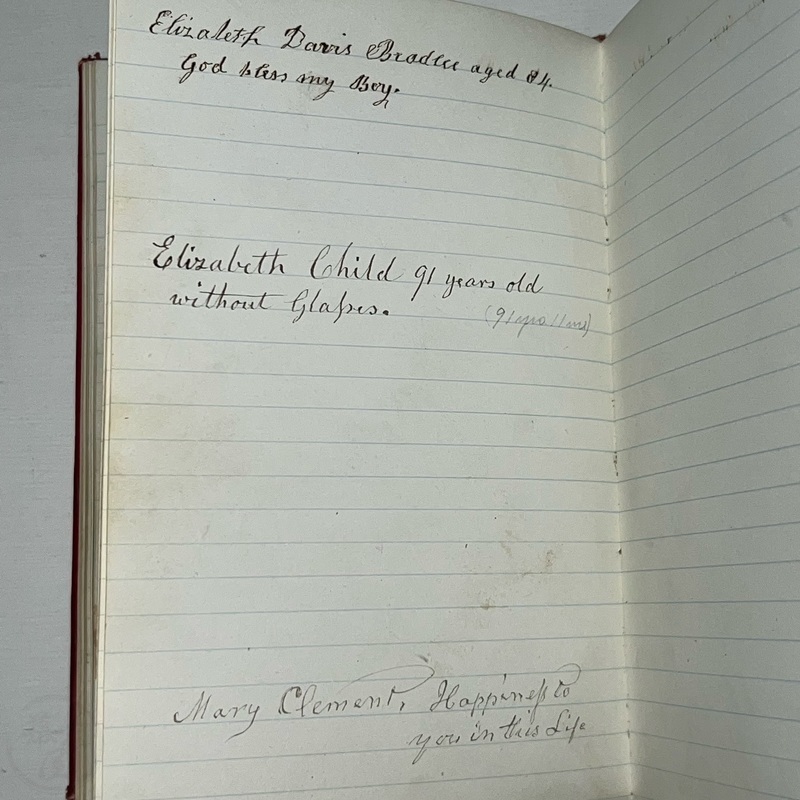 Elizabeth Davis Bradlee aged 84.
God bless my Boy.
Elizabeth Child 91 years old
without Glaſses.
(91 yrs 11 ms)
Mary Clement, Happineſs to
you in this Life